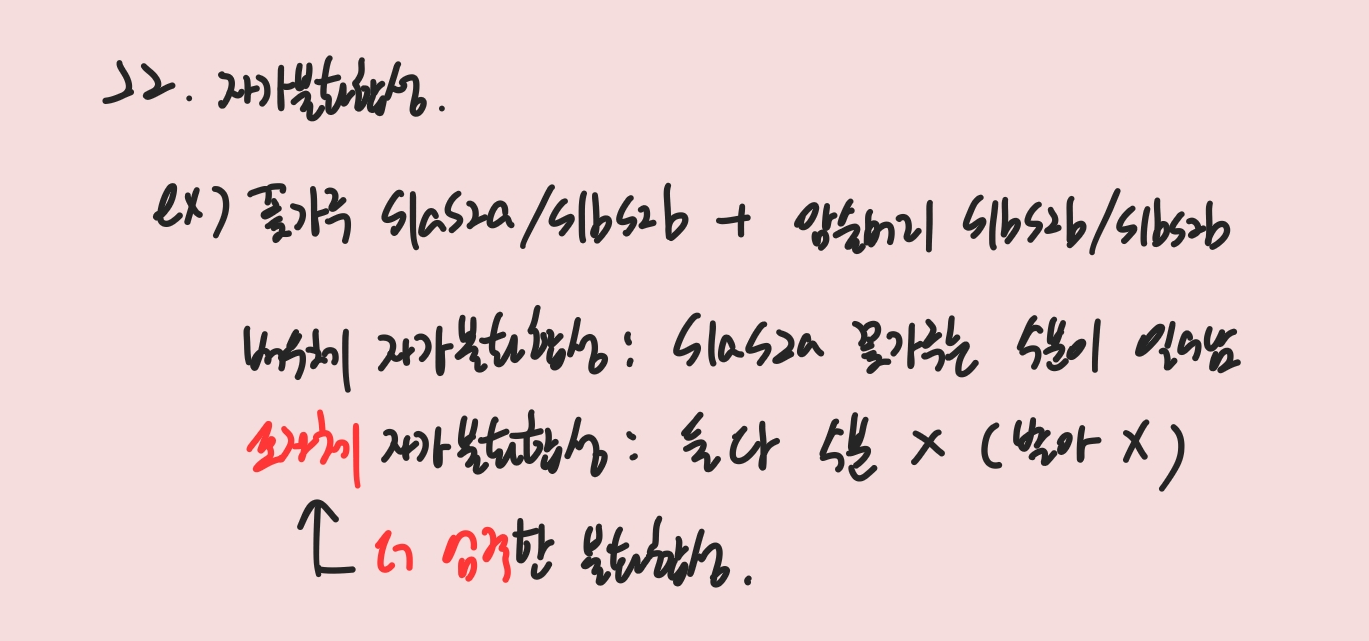 22. 자가불화합성.
ex) 꽃가루 S1aS2a/S1bS2b + 암술머리 S1bS2b/S1bS2b
배우체 자가불화합성 : S1aS2a 꽃가루는 수분이 일어남
포자체 자가불화합성 : 둘 다 수분 X (발아 X)
↑ 더 엄격한 불화합성.